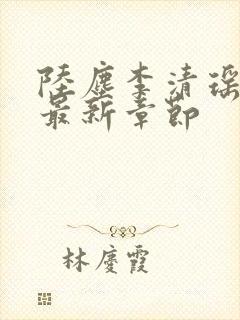 陸塵李清瑤
最新章節
林慶霞